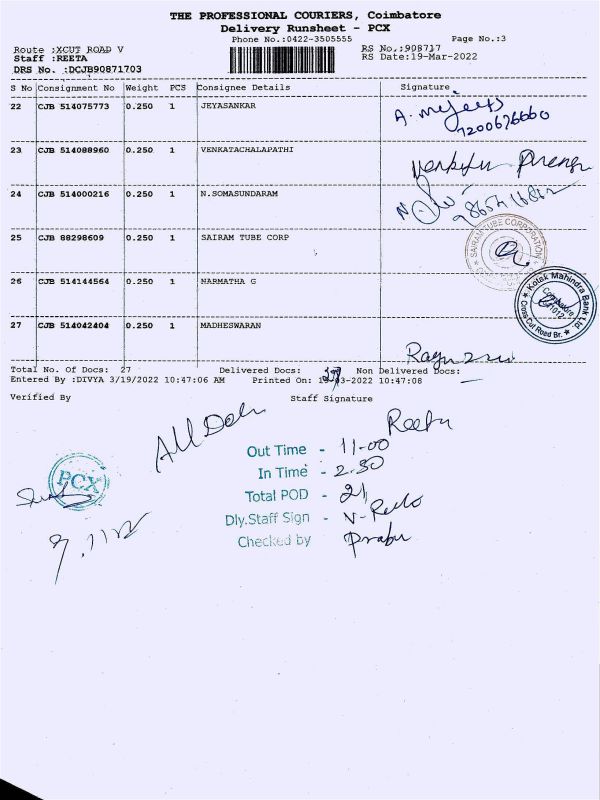 THE PROFESSIONAL COURIERS, Coimbatore
Delivery Runsheet - PCX
Phone No.:0422-3505555 Page No.:3
Route :XCUT ROAD V RS No.:908717
Staff :REETA RS Date:19-Mar-2022
DRS No. :DCJB90871703
S No Consignment No Weight PCS Consignee Details Signature
22 CJB 514075773 0.250 1 JEYASANKAR
7200676660
23 CJB 514088960 0.250 1 VENKATACHALAPATHI
24 CJB 514000216 0.250 1 N.SOMASUNDARAM
25 CJB 88298609 0.250 1 SAIRAM TUBE CORP
SAIRAM TUBE CORPORATION
26 CJB 514144564 0.250 1 NARMATHA G
Kotak Mahindra Bank Ltd.
Cross Cut Road Br.
27 CJB 514042404 0.250 1 MADHESWARAN
Total No. Of Docs: 27 Delivered Docs: Non Delivered Docs:
Entered By :DIVYA 3/19/2022 10:47:06 AM Printed On: 19-03-2022 10:47:08
Verified By Staff Signature
Reeta
Out Time - 11-00
PCX In Time - 2-30
Total POD - 21
Dly.Staff Sign -
Checked by Prabu